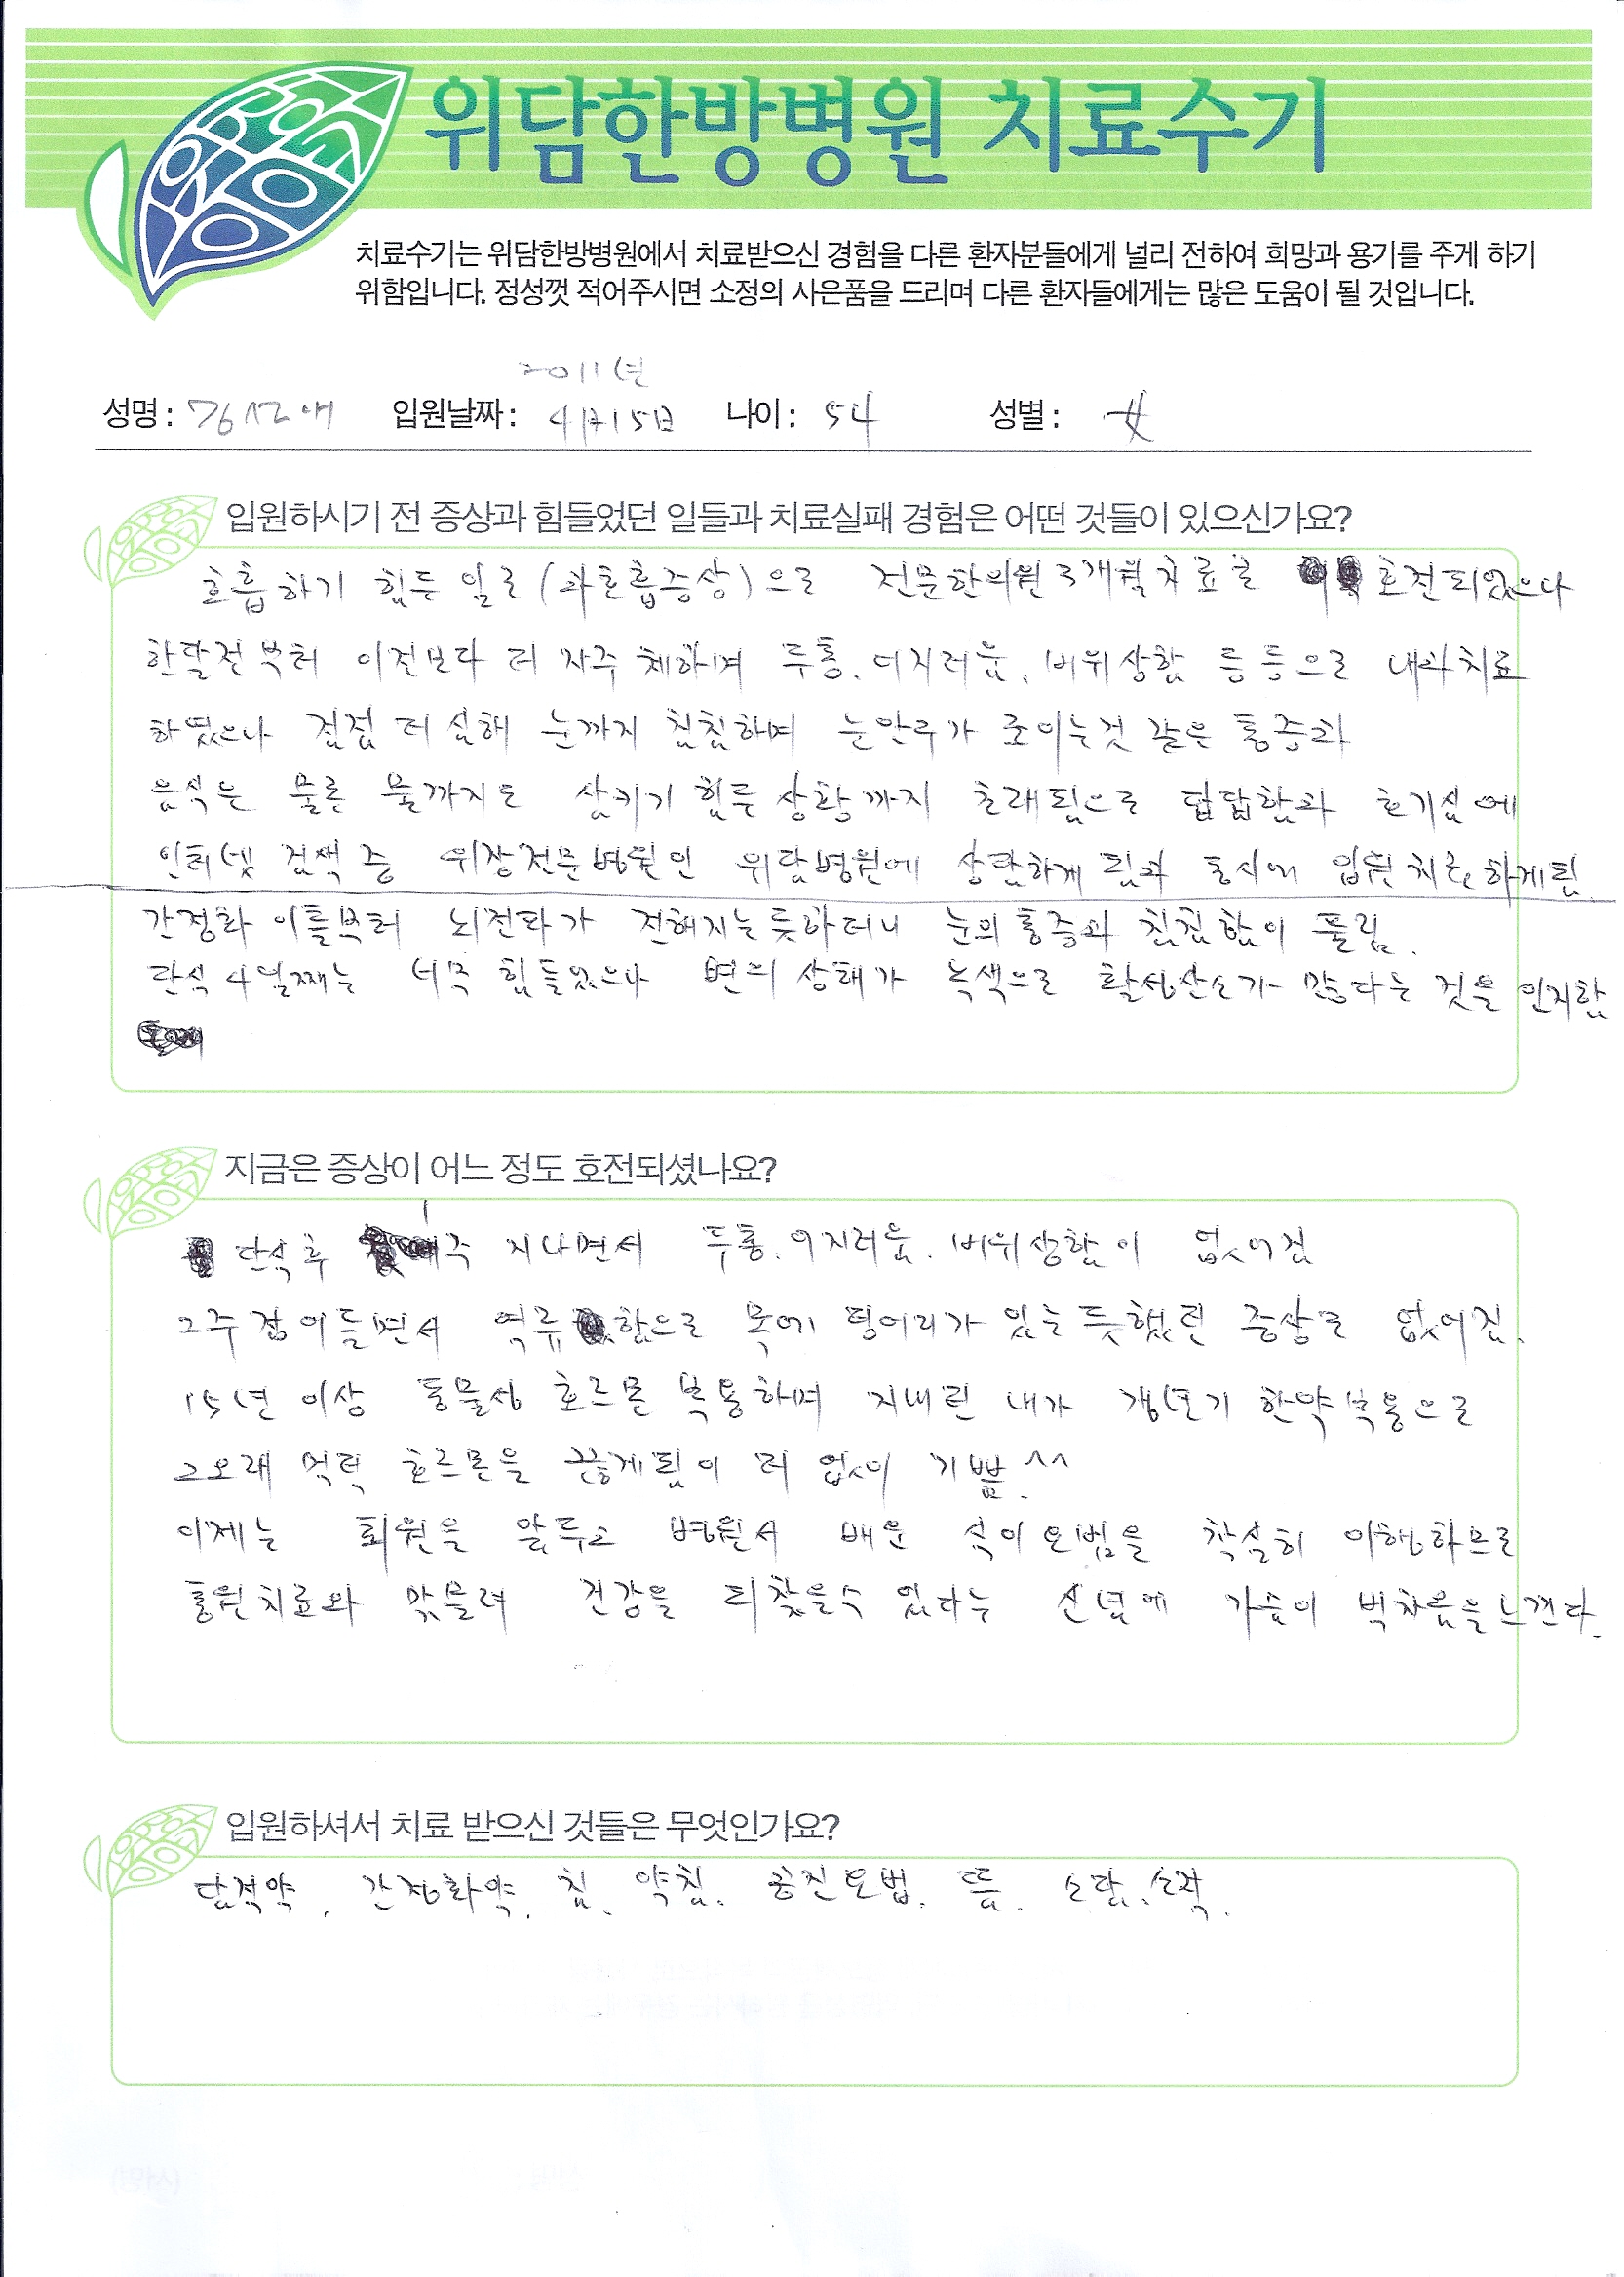 위담한방병원 치료수기
치료수기는 위담한방병원에서 치료받으신 경험을 다른 환자분들에게 널리 전하여 희망과 용기를 주게 하기
위함입니다. 정성껏 적어주시면 소정의 사은품을 드리며 다른 환자들에게는 많은 도움이 될 것입니다.
2011년
성명 : 입원날짜 : 4月15日 나이 : 54 성별 : 女
입원하시기 전 증상과 힘들었던 일들과 치료실패 경험은 어떤 것들이 있으신가요?
호흡하기 힘든 일로 (과호흡증상)으로 전문한의원 3개월 치료로 호전되었으나
한달전부터 이전보다 더 자주 체하며 두통. 어지러움. 비위상함 등등으로 내과치료
하였으나 점점 더 심해 눈까지 침침하며 눈안구가 조이는것 같은 통증과
음식은 물론 물까지도 삼키기 힘든 상황까지 초래됨으로 답답함과 호기심에
인터넷 검색 중 위장전문병원인 위담병원에 상담하게 됨과 동시에 입원치료 하게됨.
간정화 이틀부터 뇌전파가 전해지는듯하더니 눈의 통증과 침침함이 풀림.
단식 4일째는 너무 힘들었으나 변의 상태가 녹색으로 활성산소가 많다는 것을 인지함
지금은 증상이 어느 정도 호전되셨나요?
단식후 1주 지나면서 두통. 어지러움. 비위상함이 없어짐
2주 접어들면서 역류함으로 목에 덩어리가 있는듯했던 증상도 없어짐.
15년 이상 동물성 호르몬 복용하며 지내던 내가 갱년기 한약복용으로
그오래 먹던 호르몬을 끊게됨이 더 없이 기쁨. ^^
이제는 퇴원을 앞두고 병원서 배운 식이요법을 착실히 이행하므로
통원치료와 맞물려 건강을 되찾을수 있다는 신념에 가슴이 벅차옴을 느낀다.
입원하셔서 치료 받으신 것들은 무엇인가요?
담적약. 간정화약. 침. 약침. 공진요법. 뜸. 소담. 소적.